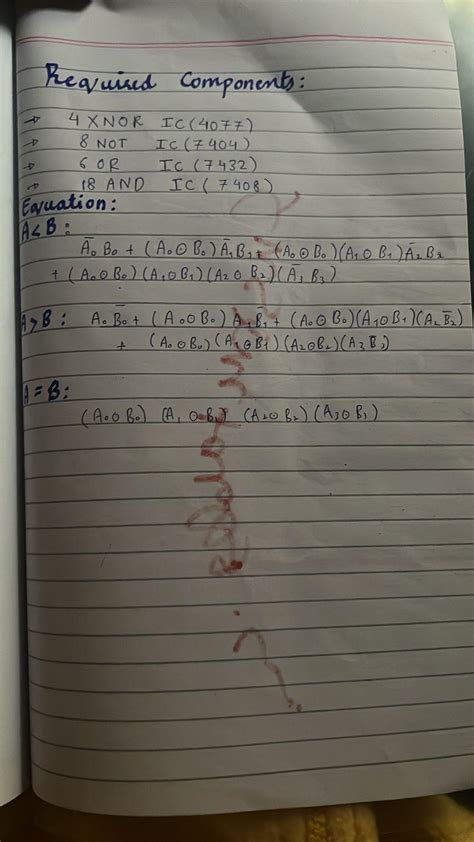 Required Components:
→ 4 XNOR IC (4077)
→ 8 NOT IC (7404)
→ 6 OR IC (7432)
→ 18 AND IC (7408)
Equation:
A < B:
Ā₀ B₀ + (A₀ ⊙ B₀) Ā₁ B₁ + (A₀ ⊙ B₀)(A₁ ⊙ B₁) Ā₂ B₂
+ (A₀ ⊙ B₀)(A₁ ⊙ B₁)(A₂ ⊙ B₂)(Ā₁ B₃)
A > B: A₀ B̄₀ + (A₀ ⊙ B₀) A₁ B̄₁ + (A₀ ⊙ B₀)(A₁ ⊙ B₁)(A₂ B̄₂)
+ (A₀ ⊙ B₀)(A₁ ⊙ B₁)(A₂ ⊙ B₂)(A₃ B̄₃)
A = B:
(A₀ ⊙ B₀) (A₁ ⊙ B₁) (A₂ ⊙ B₂) (A₃ ⊙ B₁)